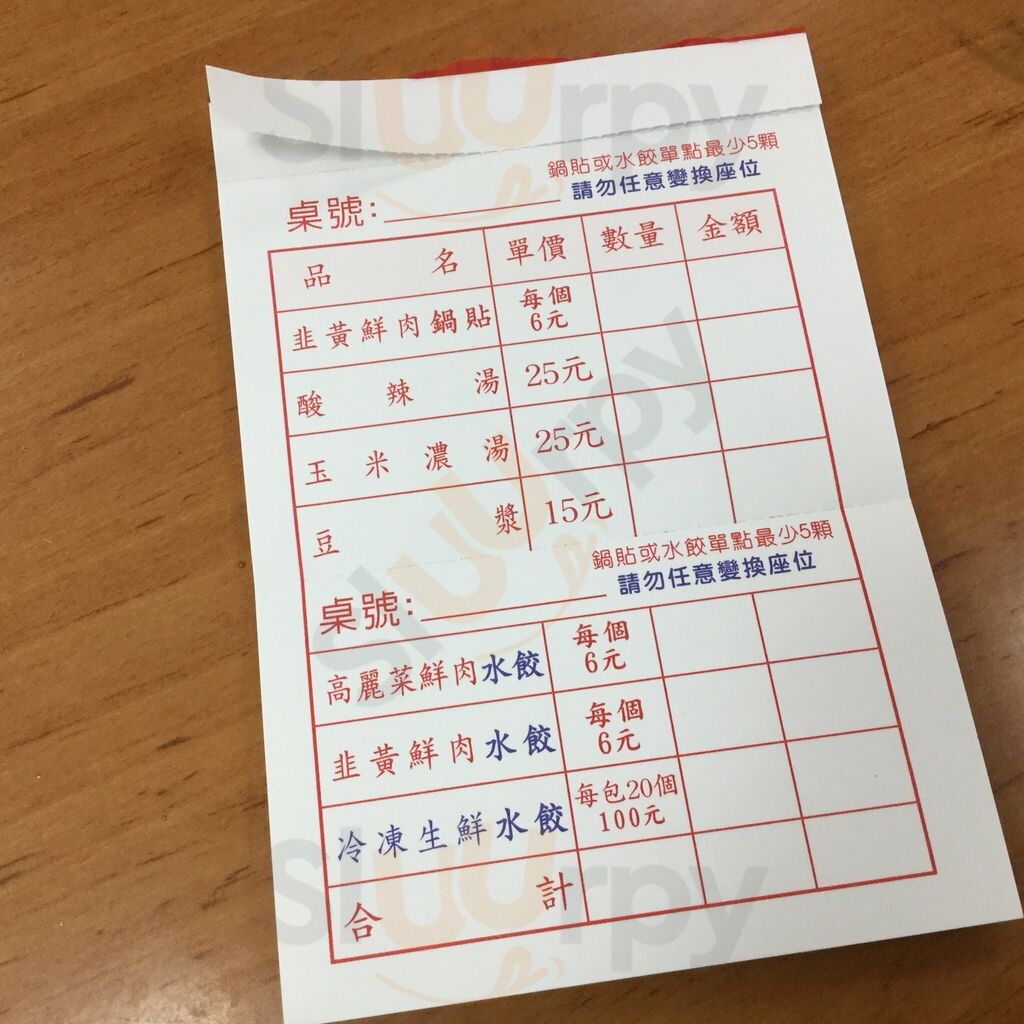 鍋貼或水餃單點最少5顆
桌號: 請勿任意變換座位
品名 單價 數量 金額
韭黃鮮肉鍋貼 每個6元
酸辣湯 25元
玉米濃湯 25元
豆漿 15元
鍋貼或水餃單點最少5顆
桌號: 請勿任意變換座位
高麗菜鮮肉水餃 每個6元
韭黃鮮肉水餃 每個6元
冷凍生鮮水餃 每包20個100元
合計
sluurpy
sluurpy
sluurpy